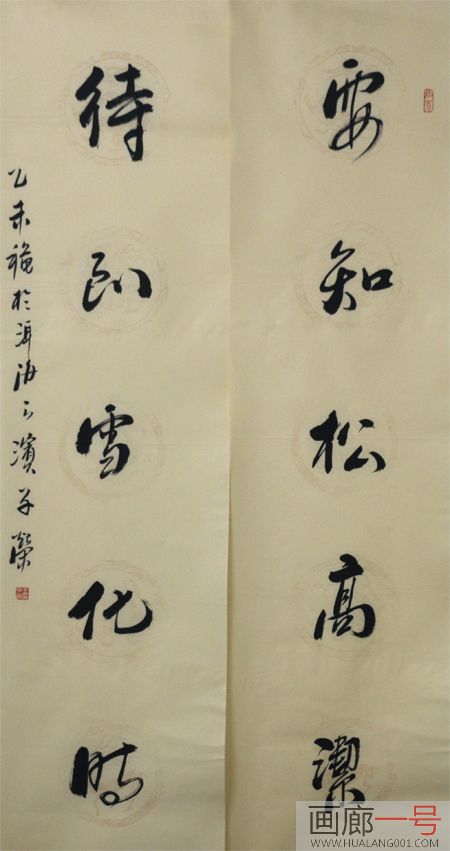 要知松高潔
待到雪化時
乙未穐於洱海之濱子
画廊一号
WWW.HUALANG001.COM